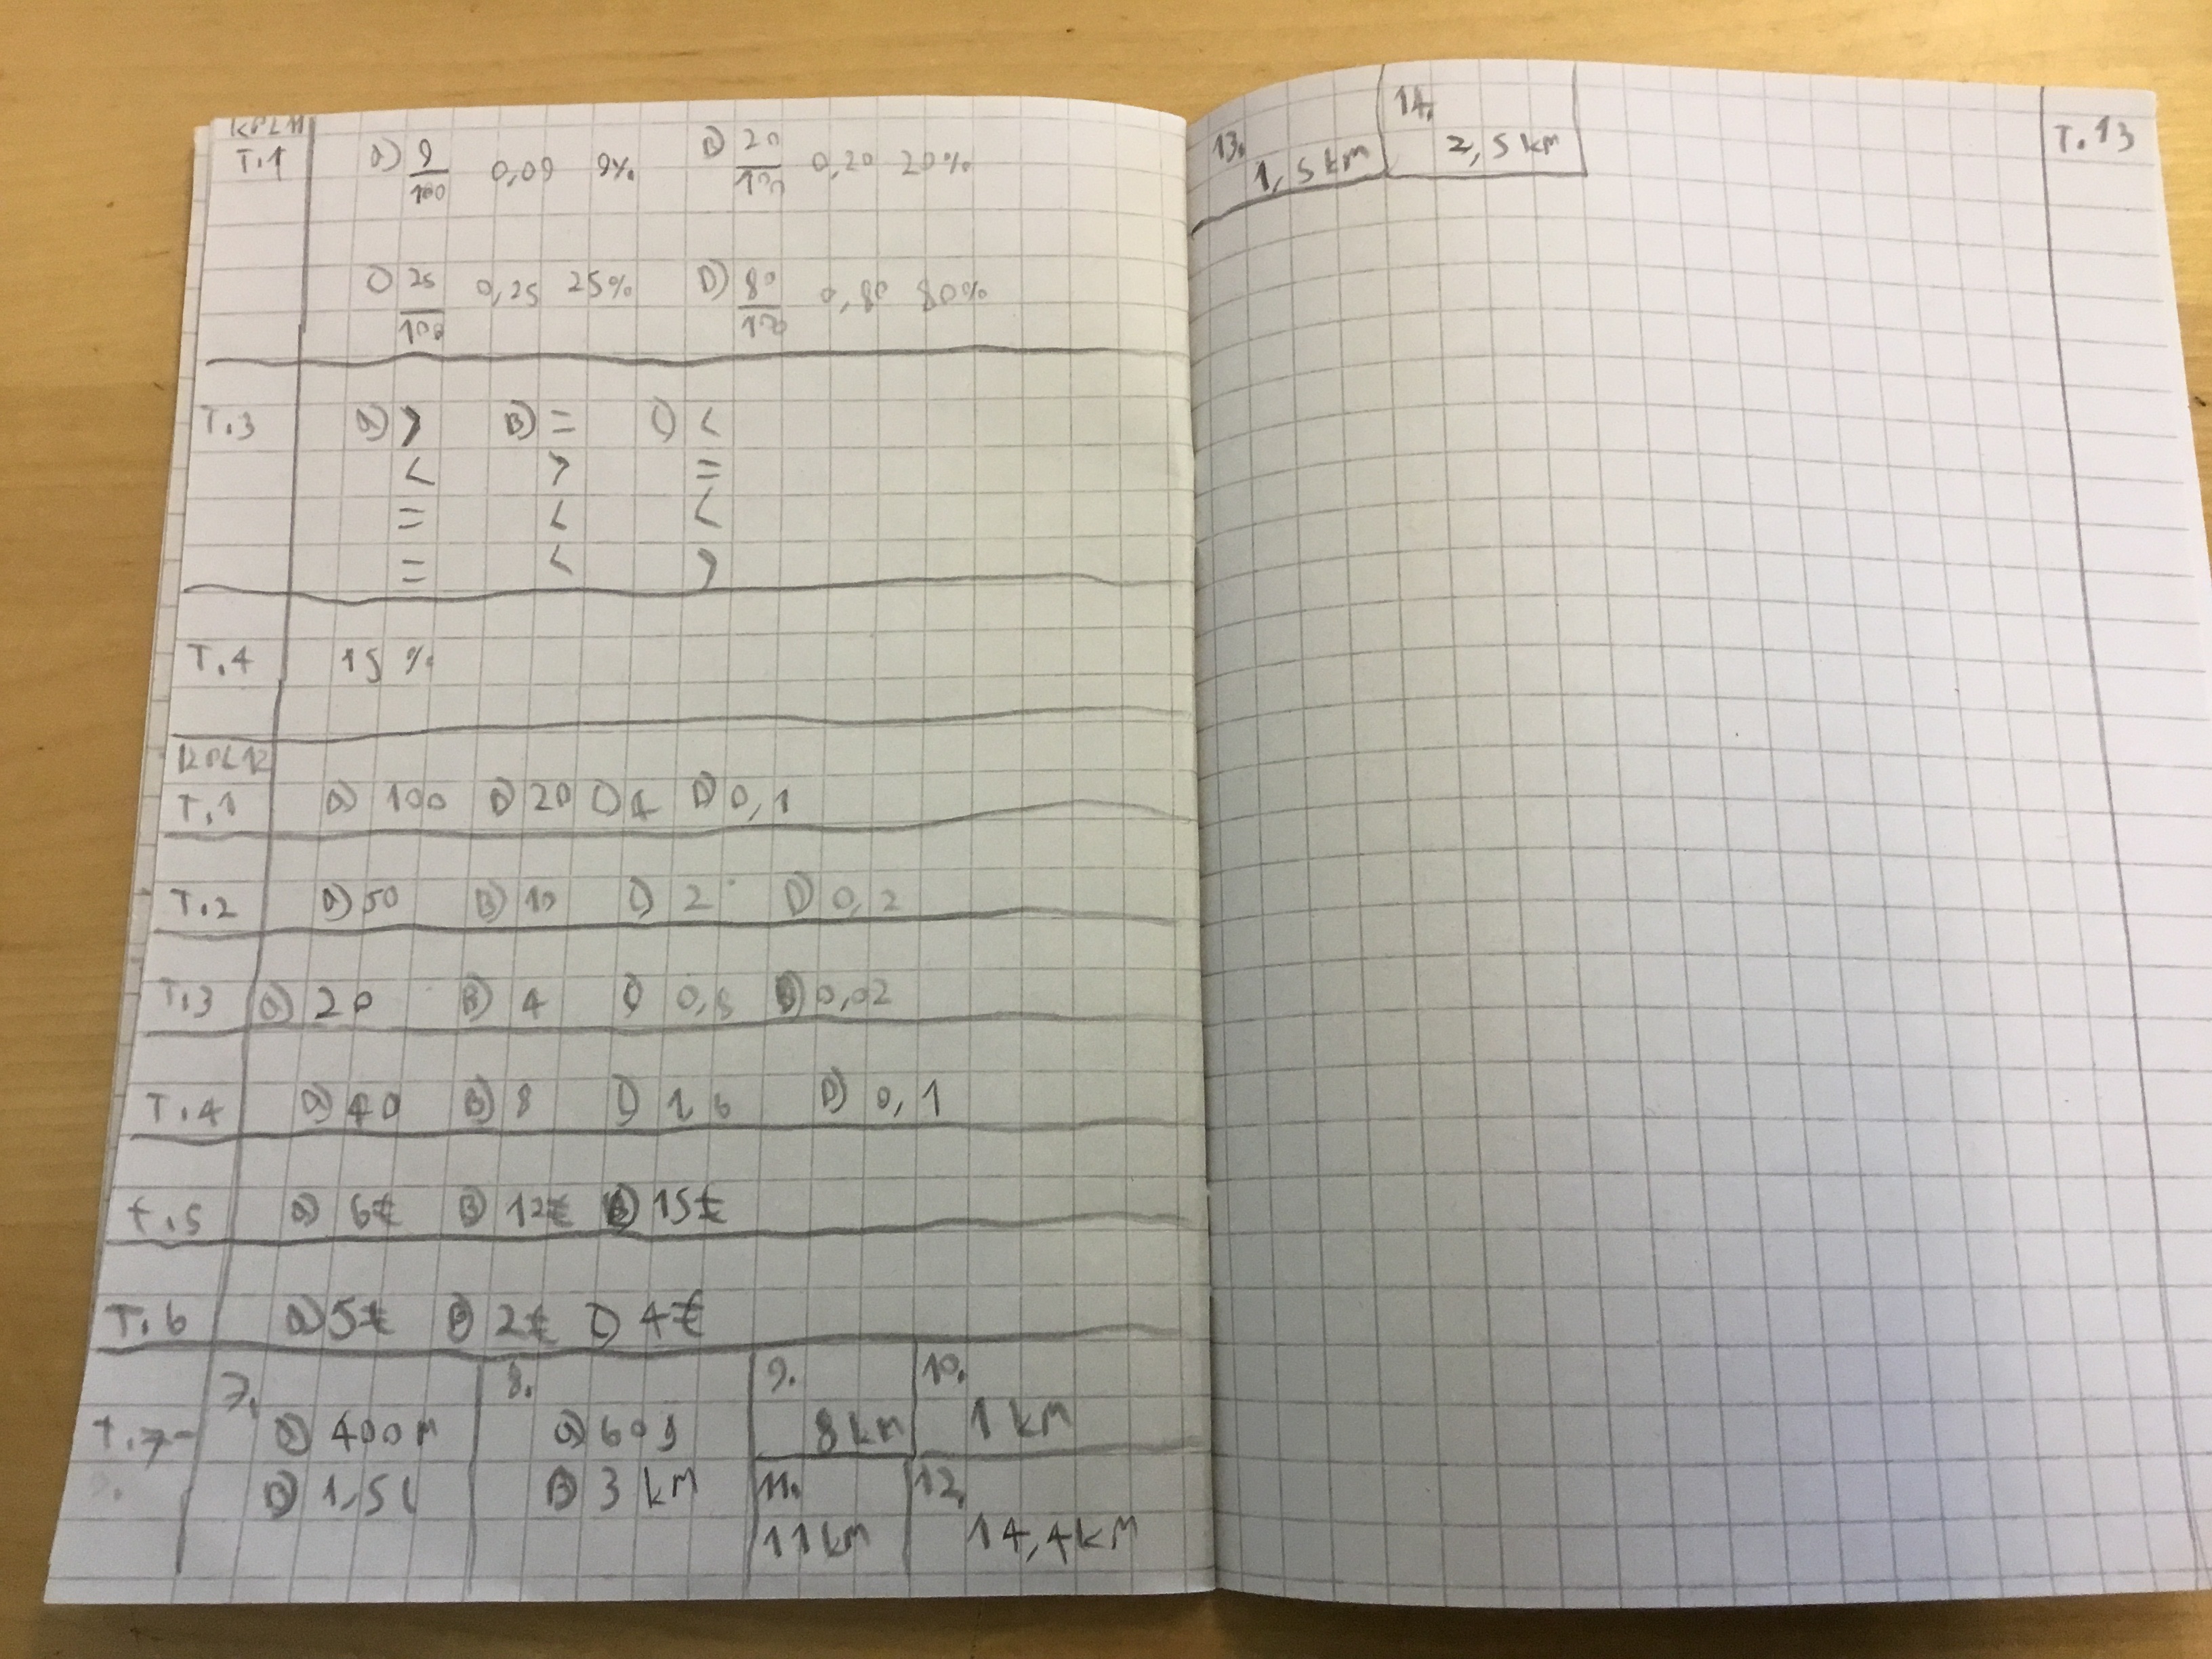 KPL11
T.1 A) 9/100 0,09 9% B) 20/100 0,20 20%
C) 25/100 0,25 25% D) 80/100 0,80 80%
T.3 A) > B) = C) <
< > =
= < <
= < >
T.4 15 %
KPL12
T.1 A) 100 B) 20 C) 4 D) 0,1
T.2 A) 50 B) 10 C) 2 D) 0,2
T.3 A) 20 B) 4 C) D) 0,02
T.4 A) 40 B) 8 C) 1,6 D) 0,1
T.5 A) 6€ B) 12€ C) 15€
T.6 A) 5€ B) 2€ C) 4€
T.7-
7.
A) 400m
B) 1,5l
8.
A) 60g
B) 3 km
9.
8 km
10.
1 km
11.
11 km
12.
14,4 km
13.
1,5 km
14.
2,5 km
T.13